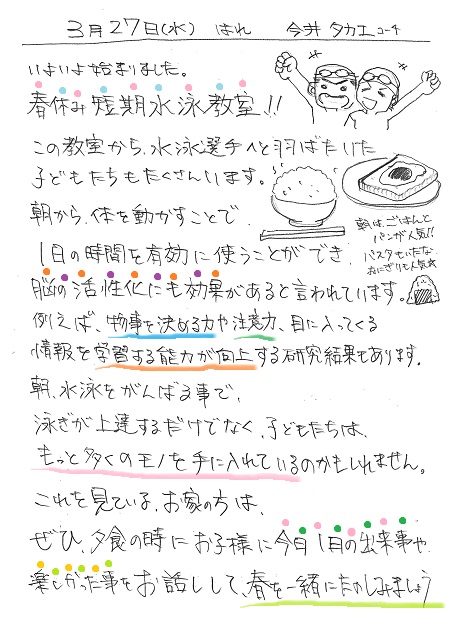 3月27日(水) はれ 今井タカエコーチ
いよいよ始まりました。
春休み短期水泳教室!!
この教室から、水泳選手へと羽ばたいた
子どもたちもたくさんいます。
朝から、体を動かすことで、
1日の時間を有効に使うことができ、
脳の活性化にも効果があると言われています。
朝は、ごはんと
パンが人気!!
パスタもいたな。
おにぎりも人気☆
例えば、物事を決める力や注意力、目に入ってくる
情報を学習する能力が向上する研究結果もあります。
朝、水泳をがんばる事で、
泳ぎが上達するだけでなく、子どもたちは、
もっと多くのモノを手に入れているのかもしれません。
これを見ている、お家の方は、
ぜひ、夕食の時にお子様に今日1日の出来事や
楽しかった事をお話しして、春を一緒にたのしみましょう